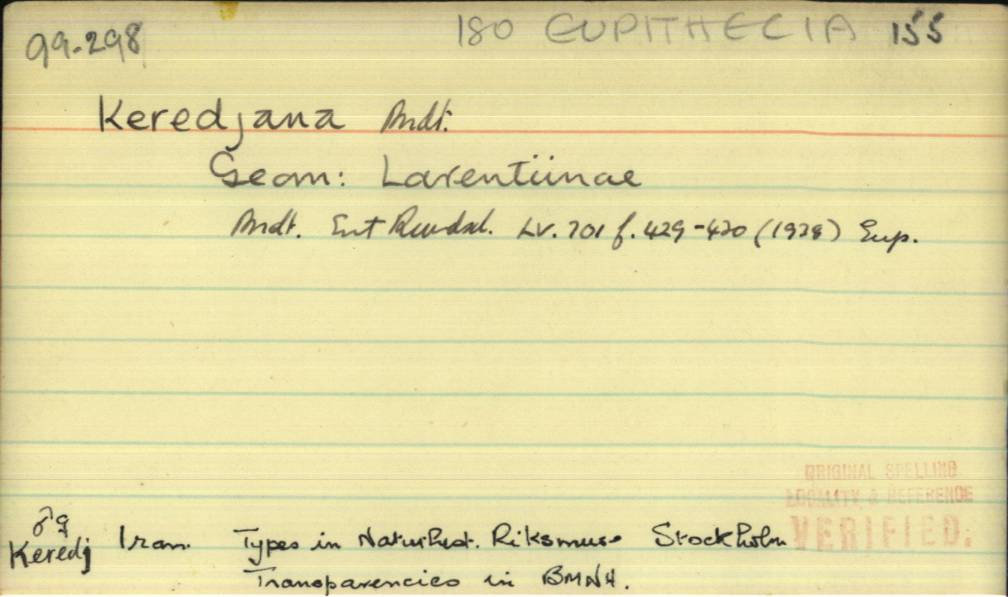 99-298
180 EUPITHECIA 155
Keredjana Brdt.
Geom: Larentiinae
Brdt. Ent Rundsch. LV. 701 f. 429-430 (1938) Eup.
ORIGINAL SPELLING
LOCALITY & REFERENCE
VERIFIED.
♂♀
Keredj Iran. Types in Naturhist. Riksmus. Stockholm
Transparencies in BMNH.